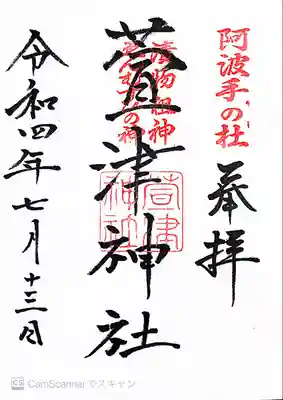 阿波手の杜
奉拝
漬物祖神
萱津神社
萱津
神社
令和四年七月十三日
CS CamScannerでスキャン